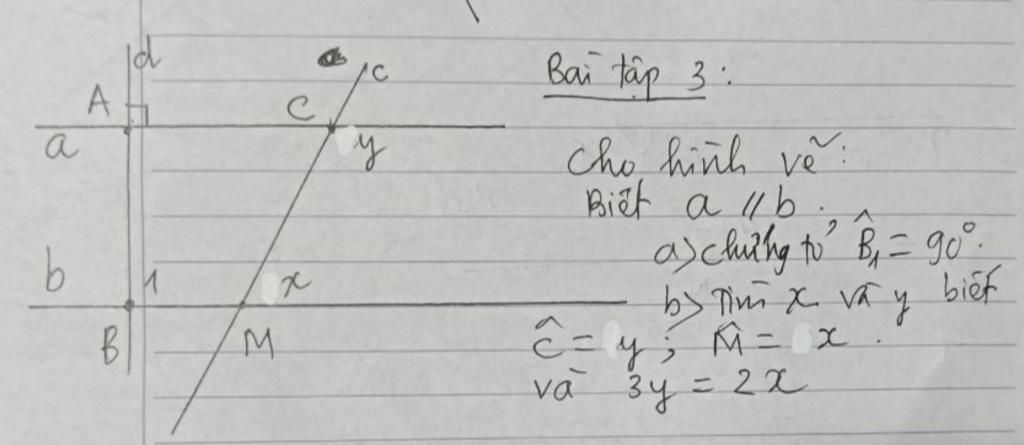 d
c
A
C
a
y
b
1
x
B
M
Bài tập 3:
Cho hình vẽ:
Biết a // b.
a> chứng tỏ B̂₁ = 90°.
b> Tìm x và y biết
Ĉ = y ; M̂ = x.
và 3y = 2x